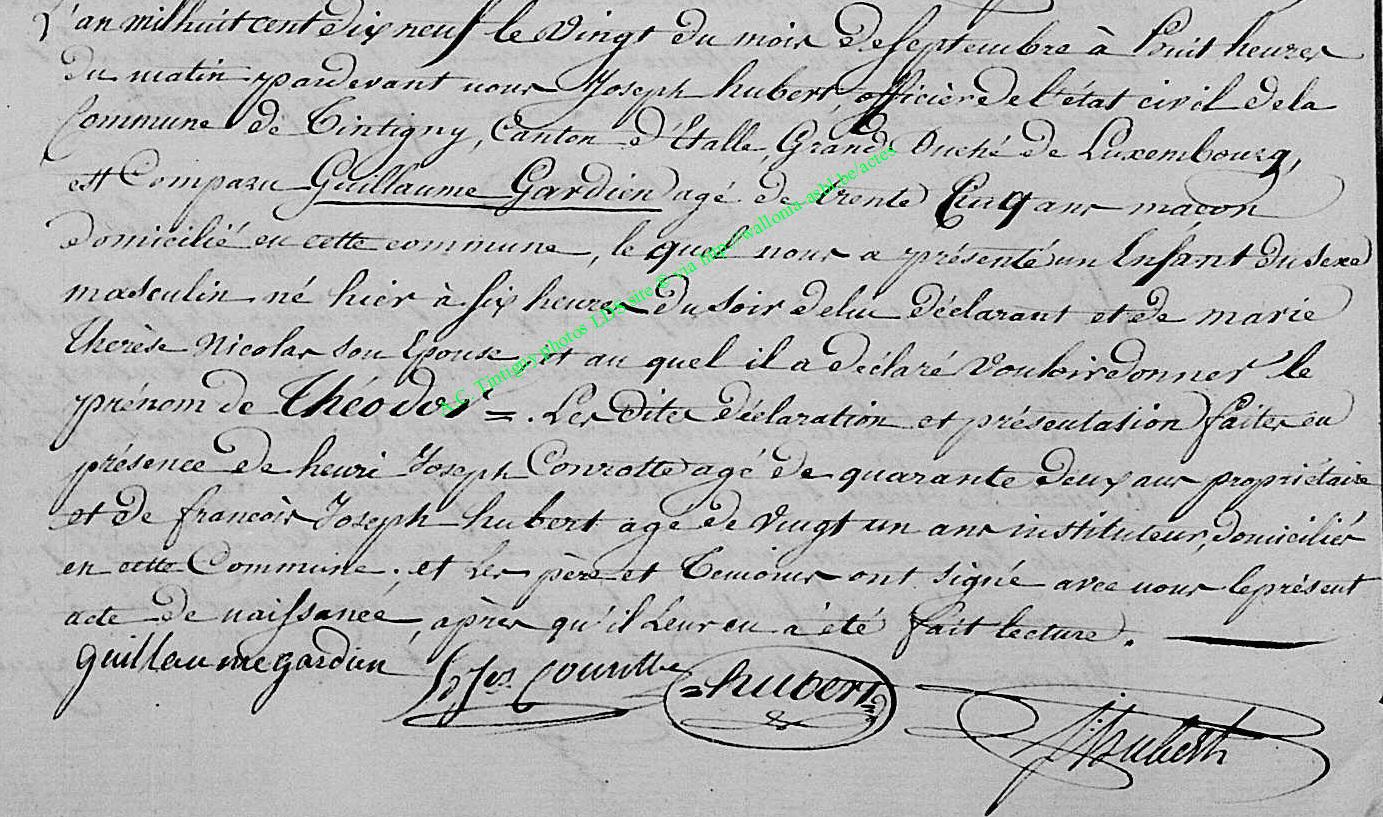 L'an mil huit cent dix neuf le vingt du mois de septembre à huit heures
du matin pardevant nous Joseph hubert, officier de l'état civil de la
Commune de Tintigny, Canton d'Étalle, Grand Duché de Luxembourg,
est Comparu Guillaume Gardien agé de trente Cinq ans maçon
domicilié en cette commune, le quel nous a présenté un Enfant du sexe
masculin né hier à six heures du soir de lui déclarant et de marie
thérèse Nicolas son Epouse, et au quel il a déclaré vouloir donner le
prénom de Théodor =. Les dites déclaration et présentation faites en
présence de henri Joseph Conrotte agé de quarante deux ans propriétaire
et de francois Joseph hubert age de vingt un ans instituteur, domiciliés
en cette Commune. et les père et temoins ont signé avec nous le présent
acte de naissance, après qu'il leur en a été fait lecture.
guillaume gardien hubert J: hubert
A.C. Tintigny photos LDS site © via http://wallonia-asbl.be/actes